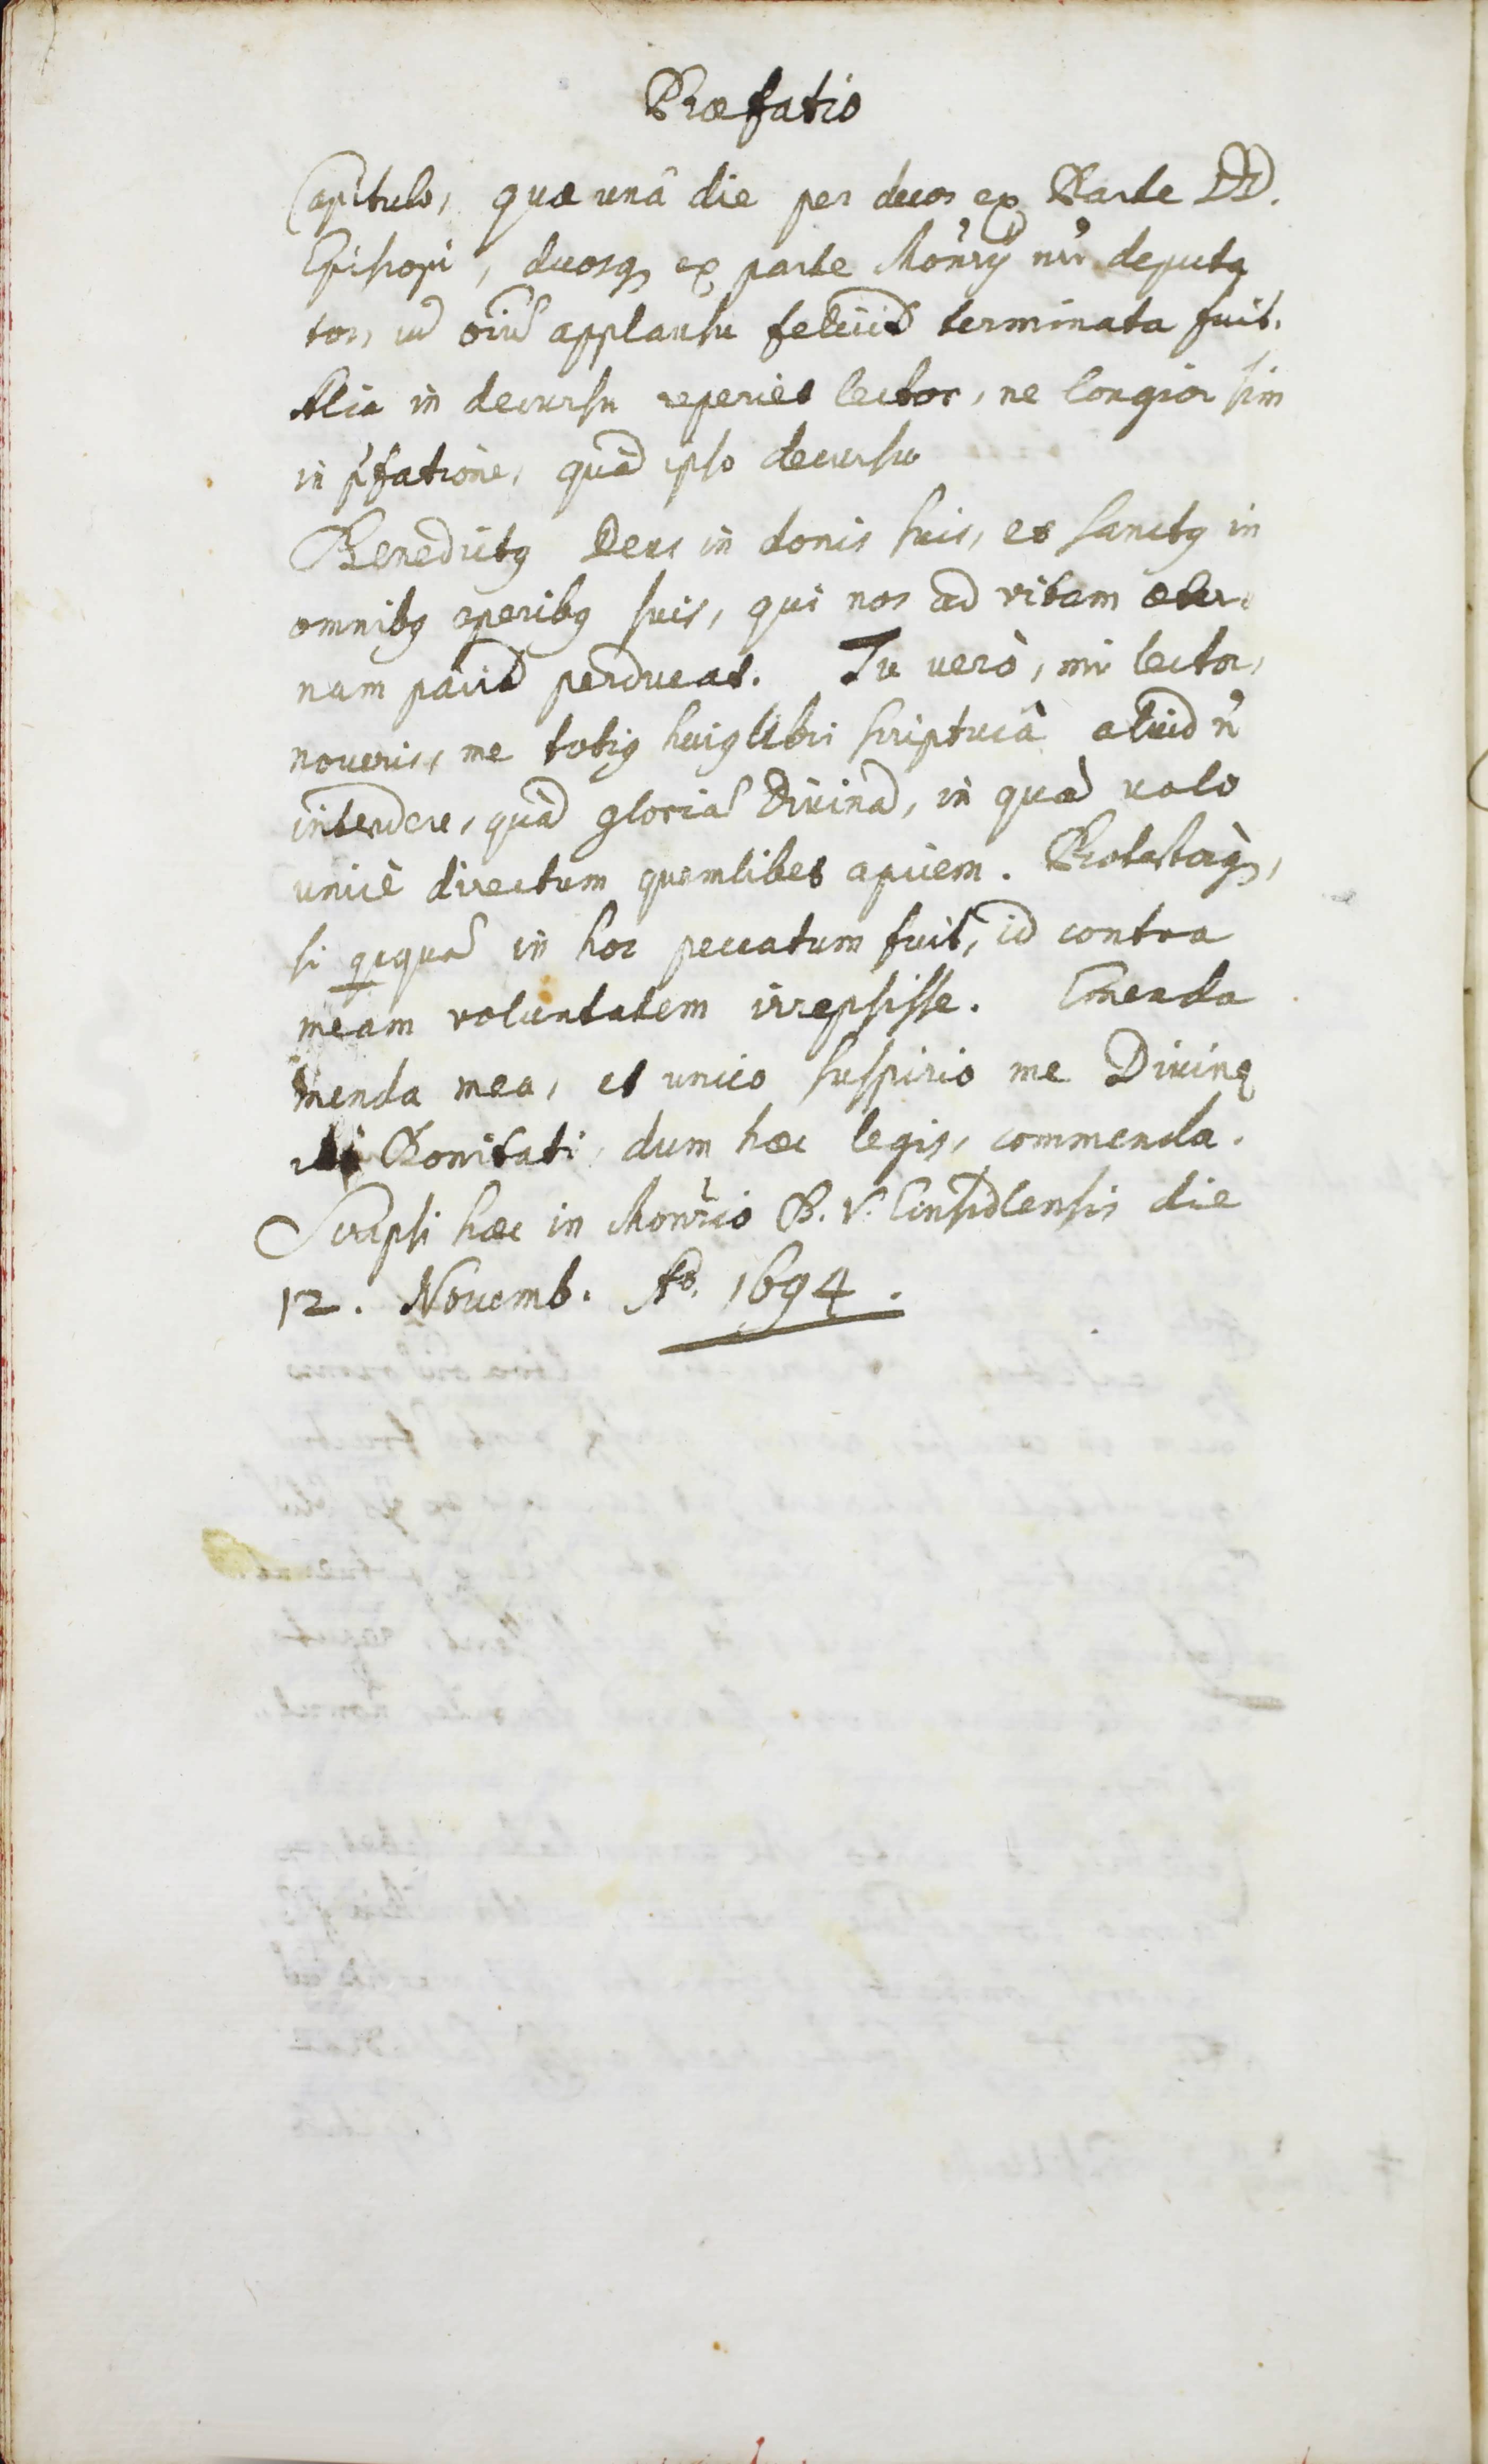 Præfatio
Capitulo, quæ unâ die per duos ex Parte DD.
Episcopi, duosq₃ ex parte Monrÿ nri deputa
tos, cũ oiũ applausu felicit̃ terminata fuit.
Alia in decursu reperiet lector, ne longior sim
in p̃fatione, quã ipso decursu
Benedictꝰ Deus in donis suis, et sanctꝰ in
omnibꝰ operibꝰ suis, qui nos ad vitam æter-
nam parit̃ perducat. Tu verò, mi lector,
noveris, me totiꝰ huiꝰ libri scripturâ aliud ñ
intendere, quã gloriã Divinã, in quã volo
unicè directum quemlibet apicem. Protestorq₃,
si qcquã in hoc peccatum fuit, id contra
meam voluntatem irrepsisse. Emenda
menda mea, et unico suspirio me Divinæ
Bonitati, dum hæc legis, commenda.
Scripsi hæc in Monrio B. V. Einsidlensis die
12. Novemb. Aõ. 1694.